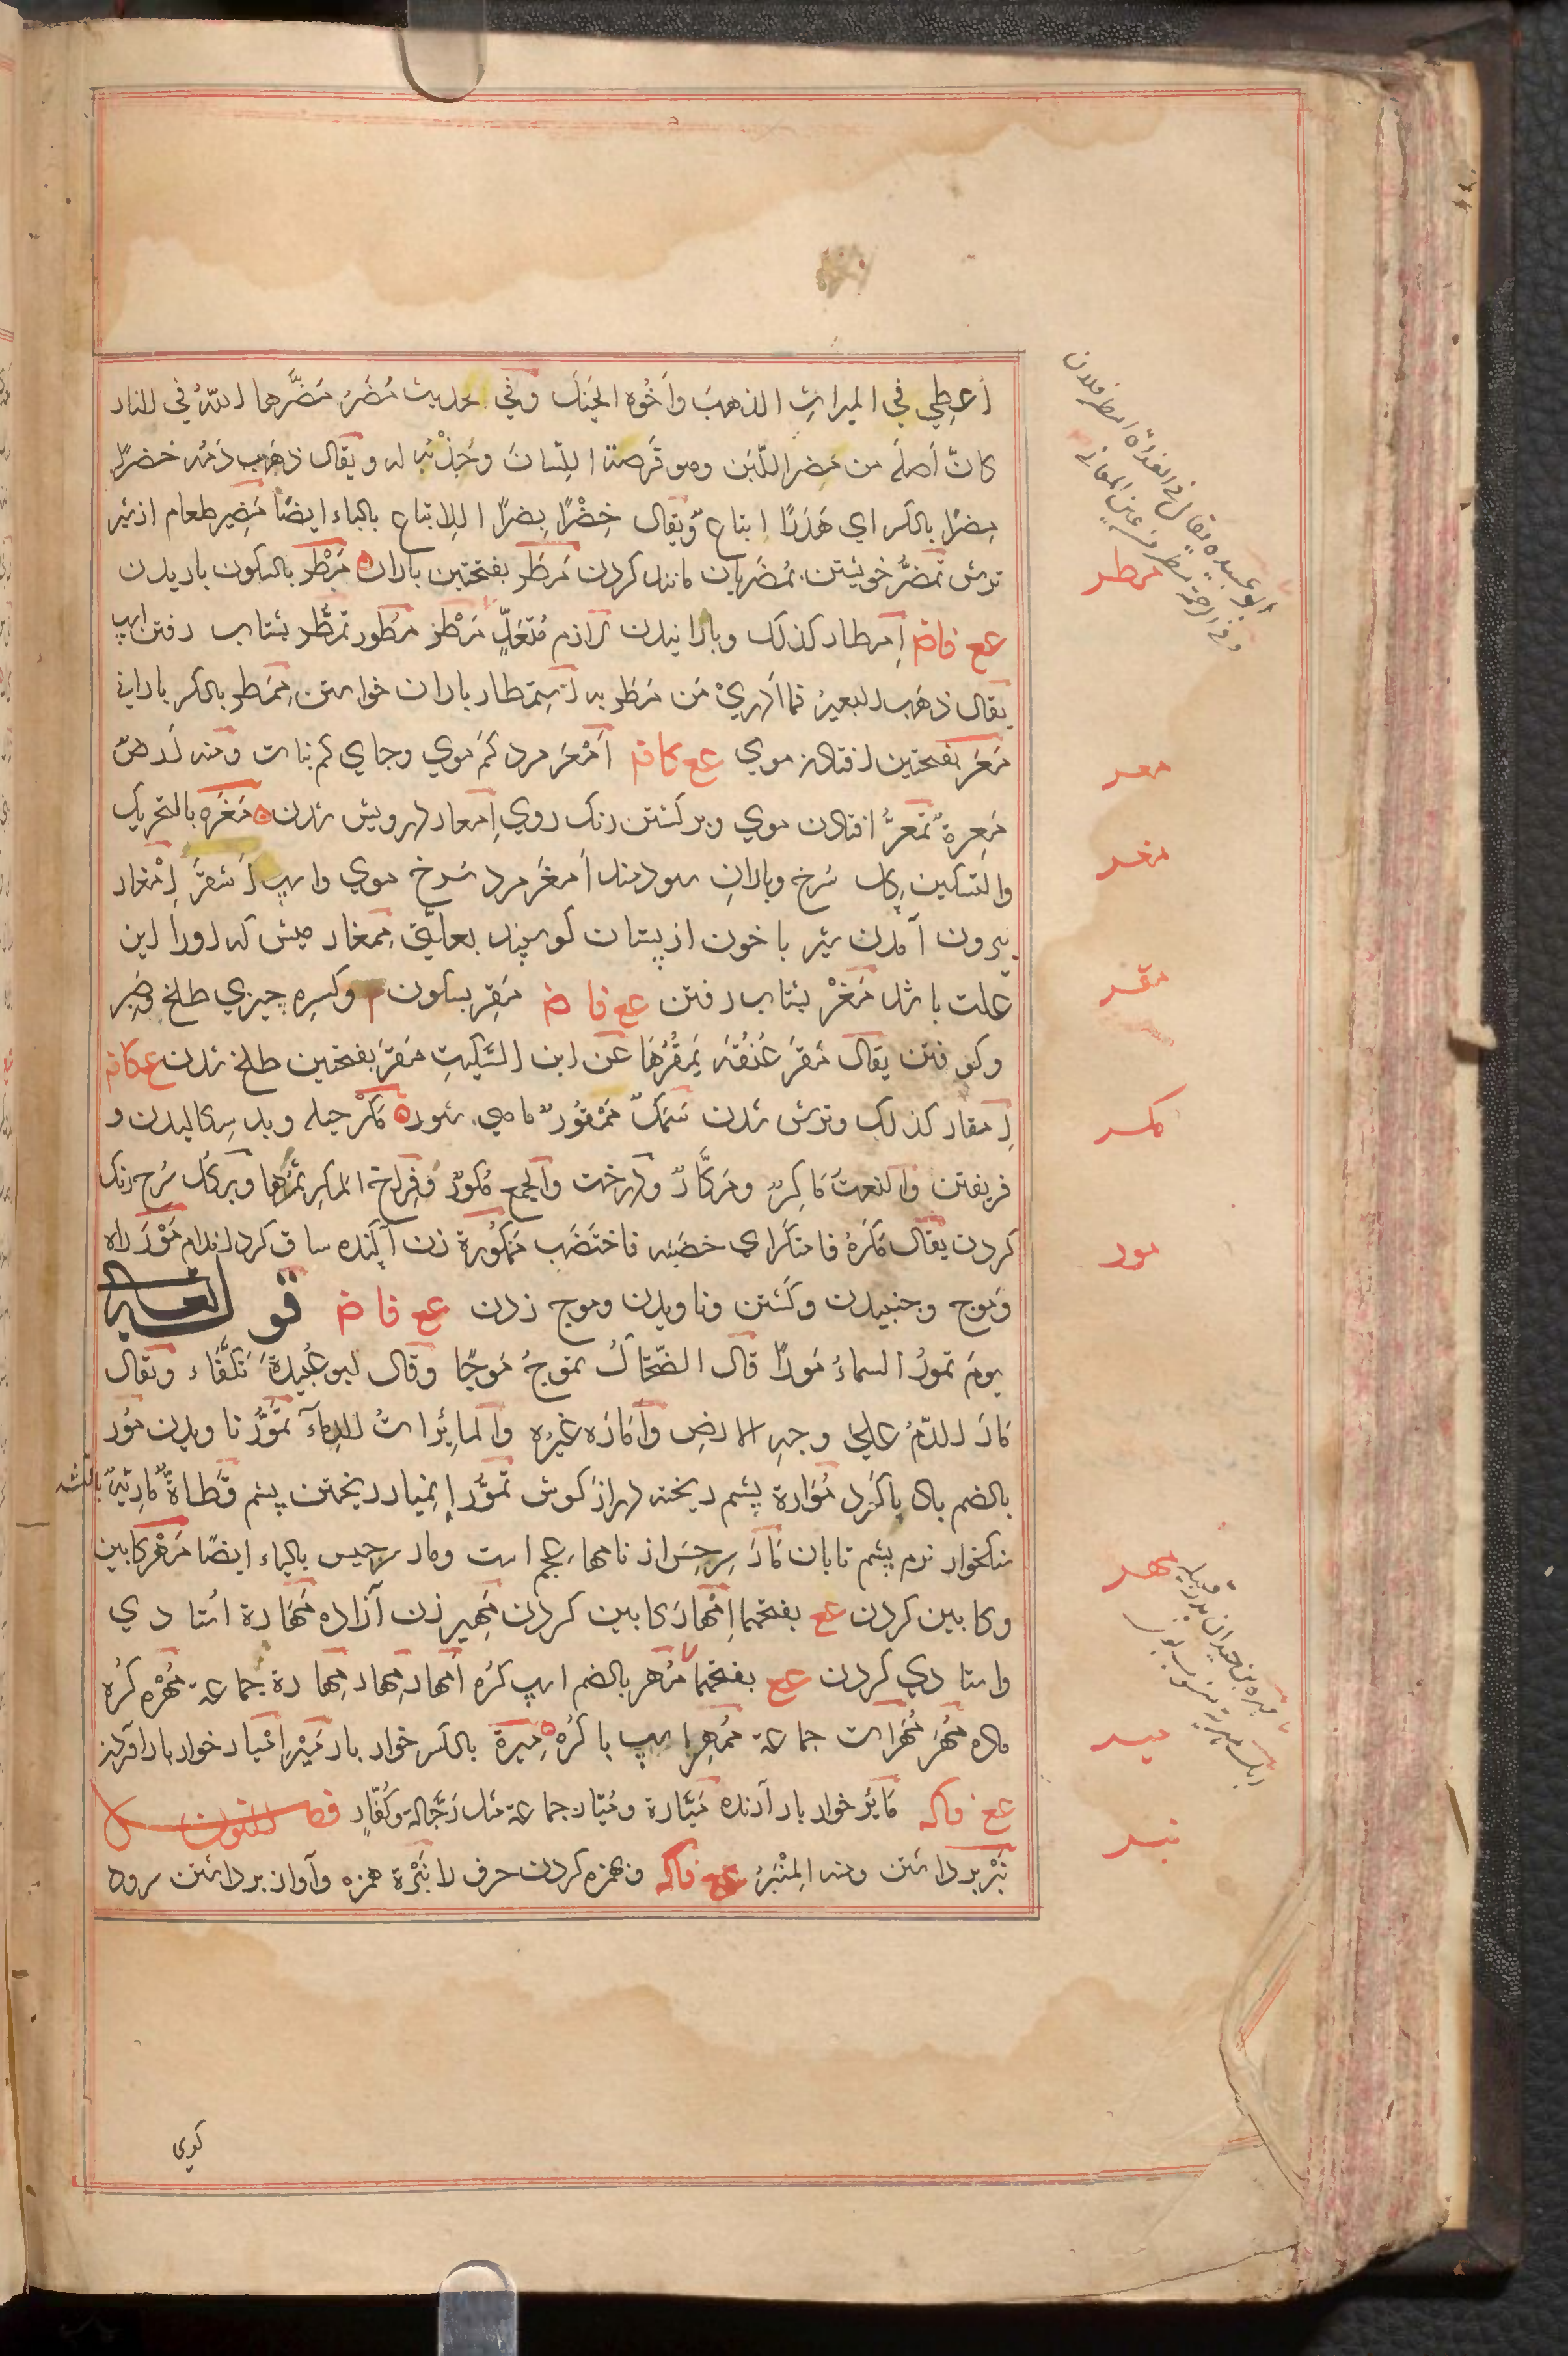 اُعطِي في الميراثِ الذهبَ وأخُوه الخَيْلَ وفي حديث مُضَرُ مَضَّرها اللهُ في النار
كانّ أصلَه من مضر اللّبَن وهو قَرصه اللِّسانَ وحَذْيُه له ويقال ذهَب دَمُه خضرًا
مِضرًا بالكسر اي هَدَرًا اتباع ويقال خِضْرًا بِضرًا للاتباع بالباء ايضًا مَضِير طعام از شير
ترش تمضُّر خويشتن بمُضَريان مانند كردن مَطَر بفتحتين باران مَطْر بالسكون باريدن
عع فاض اِمطار كذلك وبارانيدن لازم مُتعَدٍّ مَطْر مُطُور تمطُّر بشتاب رفتن اسپ
يقال ذهَب البعيرُ فما ادري مَن مَطَر به استمطار باران خواستن مِمطَر بالكسر باراني
مَعَر بفتحتين افتادن موي عع كافه اَمْعَر مرد كم موي وجاي كم نبات ومنه اَرضٌ
مَعِرةٌ تمعُّر افتادن موي وبركشتن رنك روي اِمعار درويش شدن مَغَره بالتحريك
والتسكين كل سُرخ وباران سودمند اَمغَر مرد سُرخ موي واسپ اَشقَر اِمْغار
بيرون آمدن شير با خون از پستان كوسپند بعلتي مِمغار ميش كه اورا اين
علت باشد مَغْر بشتاب رفتن عع فاض مَقِر بسكون وكسره چيزي طلخ وصَبِر
وكوفتن يقال مَقَر عُنُقَه يَمقُرُها عن ابن السِّكّيتِ مَقَر بفتحتين طلخ شدن ع كافه
اِمقار كذلك وترش شدن سَمَكٌ مَمْقُورٌ ماهي شوره مَكْر حيله وبد سكاليدن و
فريفتن والنعتُ مَاكِرٌ ومَكّارٌ ودرخت والجمع مُكُورٌ وفِراخ المَكرِ ثمَرُها وبركل سُرخ رنك
كردن يقال مَكَرهُ فامتكَر اي خضَبَه فاختَضَب مَمكُورة زن آكنده ساق كرد اندام مَوْر راه
ومَوج وجنبيدن وكشتن وناويدن وموج زدن عع فاض قو له تعالى
يومَ تمورُ السماءُ مَورًا قال الضّحّاكُ تموجُ مَوجًا وقال ابو عُبيدةَ تَكَفَّأ ويقال
مَارَ الدّمُ علي وجهِ الارضِ وأمَارَه غيرُه والمائِراتُ الدِماءُ تمَوُّر ناويدن مُور
بالضم باد با كرد مُوَارة پشم ريخته دراز كوش تمَوُّر اِنميار ريختن پشم قَطَاةٌ مَارِيّةٌ بالتشديد
سنكخوار نرم پشم تابان مَارَ سِرجِسَ از نامهاء عجم است ومار سرجيس بالياء ايضًا مَهْر كابين
وكابين كردن عع بفتحهما اِمْهار كابين كردن مَهِير زن آزاده مَهَارة استادي
واستادي كردن عع بفتحهما مُهر بالضم اسپ كرُه اَمهار مِهار مِهارة جماعة مُهْره كرُه
ماده مُهَر مُهَرات جماعة مُمهِر اسپ با كرُه مِيرة بالكسر خوار بار مَيْر اِمْتيار خوار بار آوردن
عع فاكه مَائر خوار بار آرنده مَيّارة ومُيّار جماعة مثل رَجّالة وكُفّارٍ فصل النون
نَبْر برداشتن ومنه المِنْبَرُ عع فاكه وهمزه كردن حرف را نَبْرة همزه وآواز برداشتن سرود
كوى
مطر
معر
مغر
مقر
مكر
مور
مهر
مير
نبر